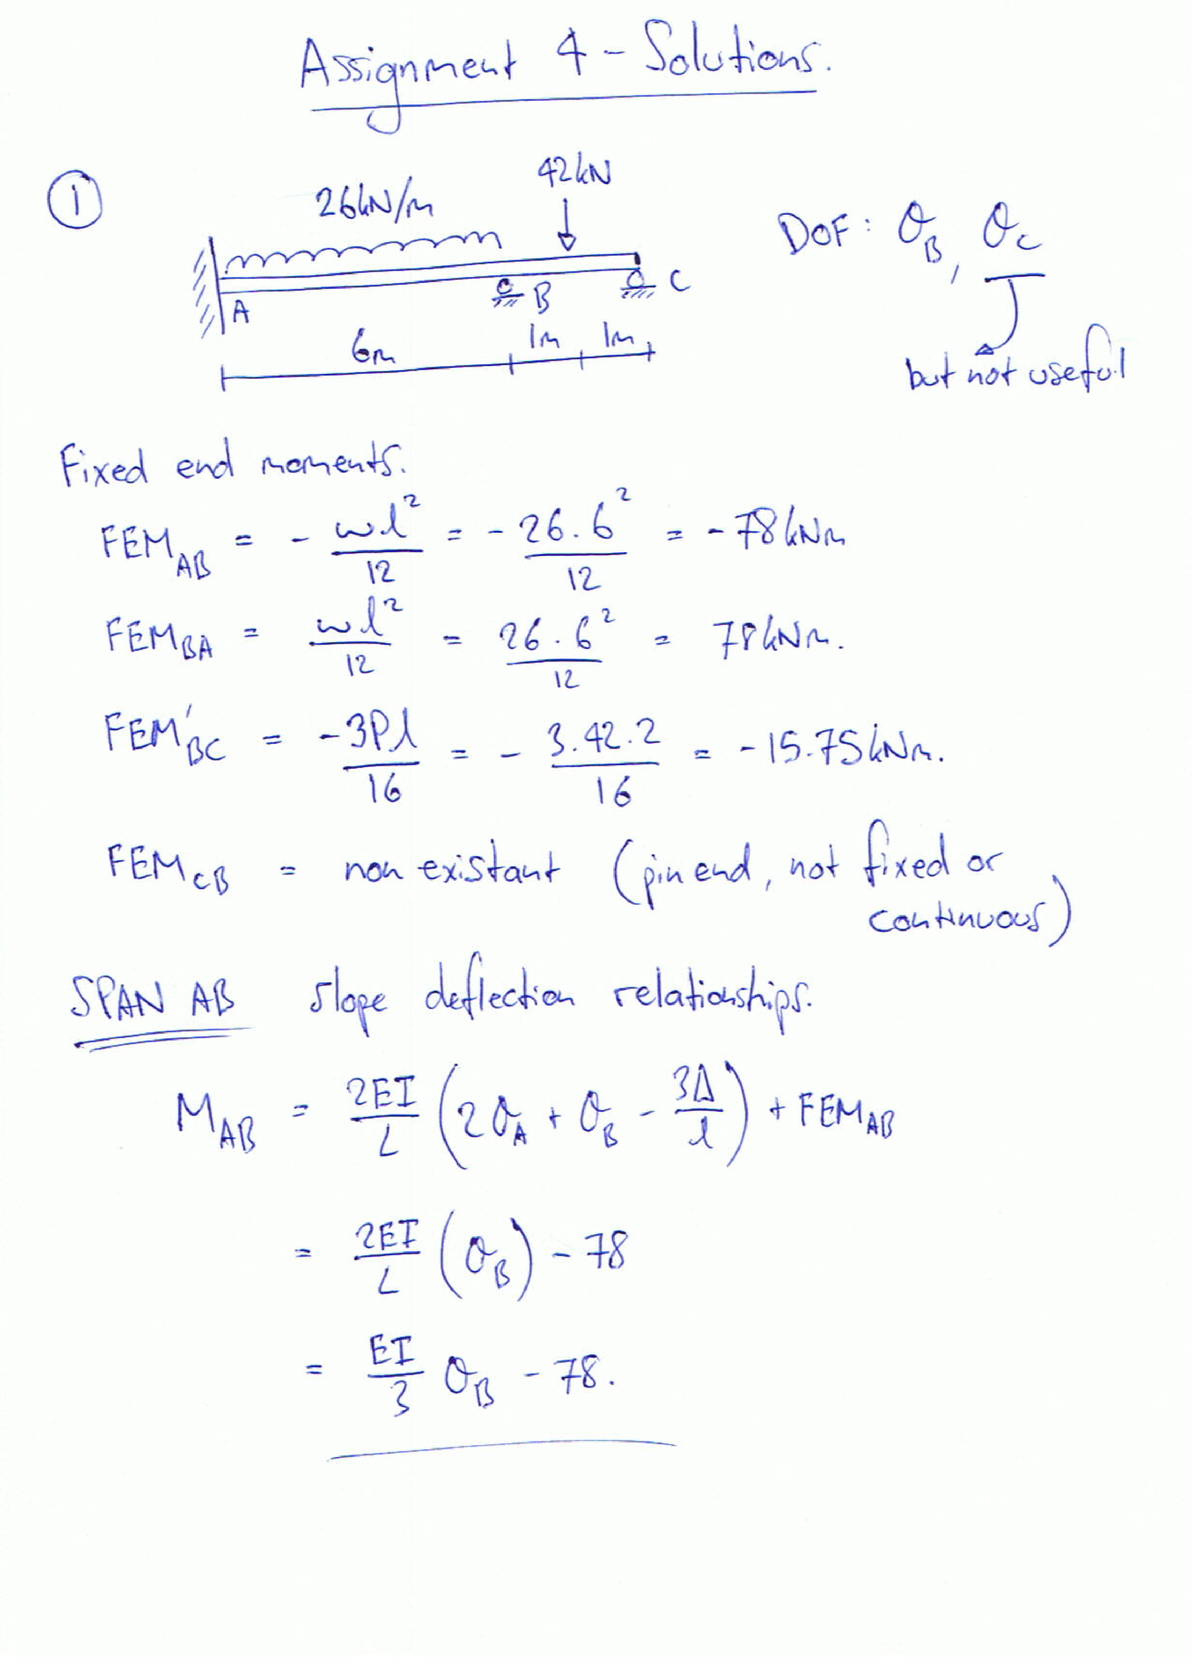 Assignment 4 - Solutions.
①
26kN/m
42kN
A
B
C
6m
1m
1m
DOF: θ_B, θ_C
but not useful
Fixed end moments.
FEM_AB = - wl²/12 = - 26.6²/12 = - 78kNm
FEM_BA = wl²/12 = 26.6²/12 = 78kNm.
FEM'_BC = -3Pl/16 = - 3.42.2/16 = - 15.75kNm.
FEM_CB = non existant (pin end, not fixed or
continuous)
SPAN AB slope deflection relationships.
M_AB = 2EI/L (2θ_A + θ_B - 3Δ/l) + FEM_AB
= 2EI/L (θ_B) - 78
= EI/3 θ_B - 78.